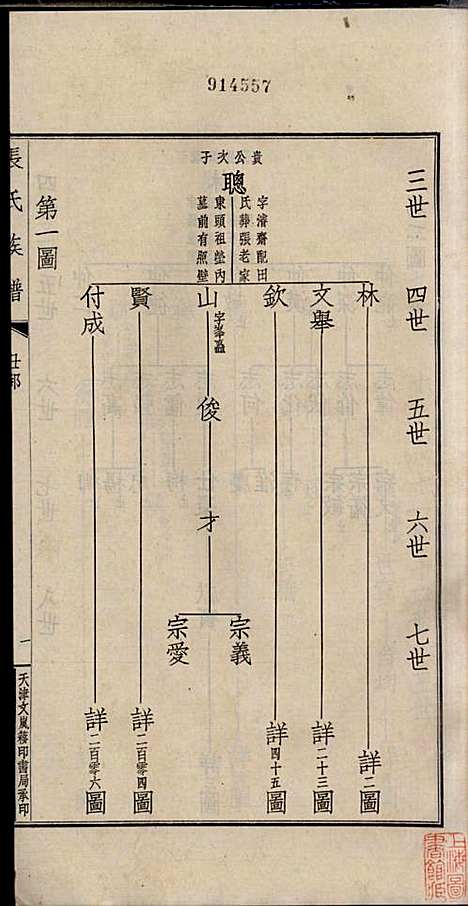 914557
三世
四世
五世
六世
七世
貴公次子
聰
字濟齋配田
氏葬張老家
東頭祖塋內
墓前有照壁
林
詳二圖
文舉
詳二十三圖
欽
詳四十五圖
山
俊
才
宗義
宗愛
賢
詳二百零四圖
付成
詳二百零六圖
第一圖
張氏族譜
一
天津文嵐簃印書局承印
上海圖書館藏